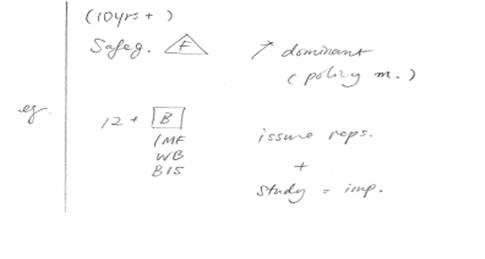 (10yrs+)
Safeg. F
↗ dominant
(policy m.)
eg.
12 + B
IMF
WB
BIS
issure reps.
+
study = imp.